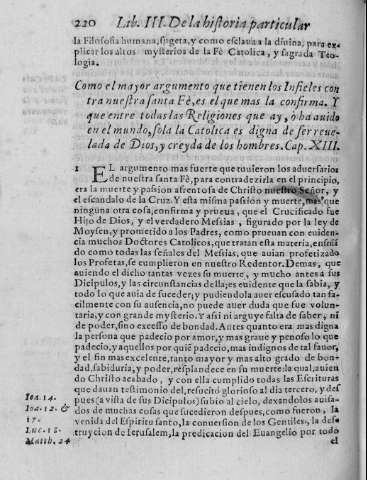 220 Lib. III. De la historia particular
la Filosofia humana, sugeta, y como esclaua a la diuina, para ex-
plicar los altos mysterios de la Fè Catolica, y sagrada Teo-
logia.
Como el mayor argumento que tienen los Infieles con
tra nuestra santa Fè, es el que mas la confirma. Y
que entre todas las Religiones que ay, ò ha auido
en el mundo, sola la Catolica es digna de ser reue-
lada de Dios, y creyda de los hombres. Cap. XIII.
1 EL argumento mas fuerte que tuuieron los aduersarios
de nuestra santa Fè, para contradezirla en el principio,
era la muerte y pasion afrentosa de Christo nuestro Señor, y
el escandalo de la Cruz. Y esta misma pasion y muerte, mas que
ninguna otra cosa, confirma y prueua, que el Crucificado fue
Hijo de Dios, y el verdadero Messias, figurado por la ley de
Moysen, y prometido a los Padres, como prueuan con euiden-
cia muchos Doctores Catolicos, que tratan esta materia, enseñã
do como todas las señales del Messias, que auian profetizado
los Profetas, se cumplieron en nuestro Redentor. Demas, que
auiendo el dicho tantas vezes su muerte, y mucho antes a sus
Dicipulos, y las circunstancias della; es euidente que la sabia, y
todo lo que auia de suceder; y pudiendola auer escusado tan fa-
cilmente con su ausencio, no puede auer duda que fue volun-
taria, y con grande mysterio. Y assi ni arguye falta de saber, ni
de poder, sino excesso de bondad. Antes quanto era mas digna
la persona que padecio por amor, y mas graue y penoso lo que
padecio, y aquellos por quiẽ padecio, mas indignos de tal fauor,
y el fin mas excelente, tanto mayor y mas alto grado de bon-
dad, sabiduria, y poder, resplandece en su muerte: la qual, auien
do Christo acabado, y con ella cumplido todas las Escrituras
que dauan testimonio del, resucitò glorioso al dia tercero, y des
pues (a vista de sus Dicipulos) subio al cielo, dexandolos auisa-
dos de muchas cosas que sucedieron despues, como fueron, la
venida del Espiritu santo, la conuersion de los Gentiles, la des-
truycion de Ierusalem, la predicacion del Euangelio por todo
el
Ioa. 14.
Ioa. 12. &
17.
Luc. 18.
Matth. 24